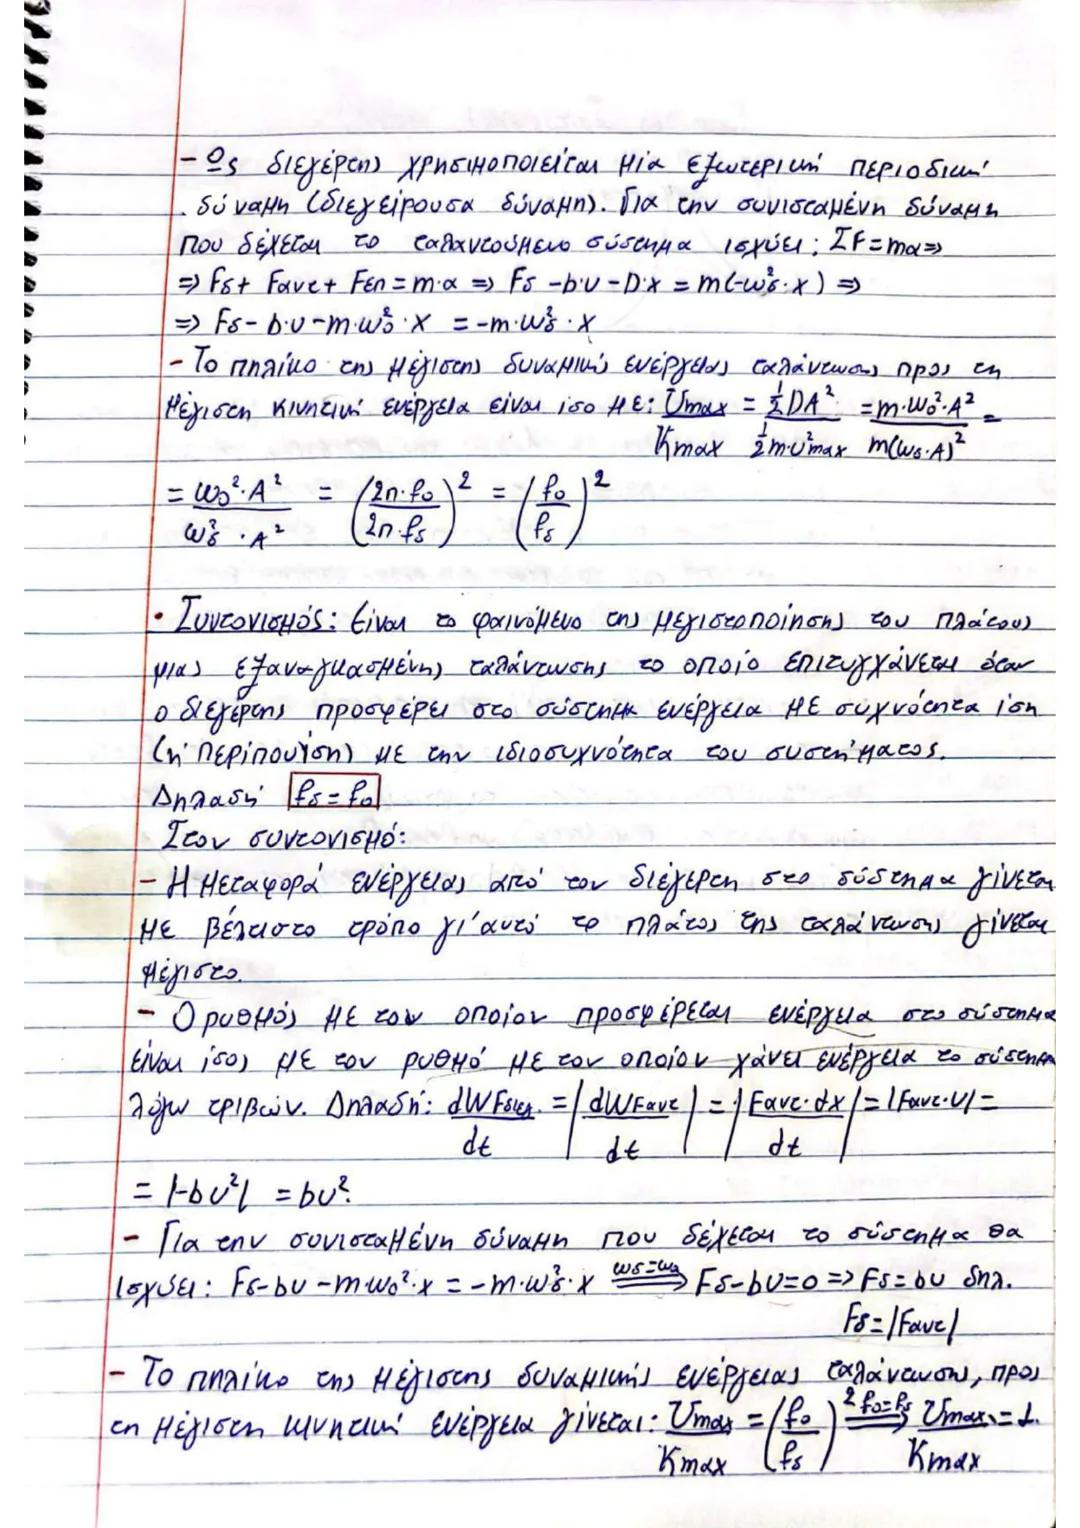 - Ως διεγέρτης χρησιμοποιείται μία εξωτερική περιοδική
δύναμη (διεγείρουσα δύναμη). Για την συνισταμένη δύναμη
που δέχεται το ταλαντούμενο σύστημα ισχύει: ΣF=mα=>
=> Fδ+ Fαντ+ Fεπ=m·α => Fδ -b·υ-D·x = m(-ωδ²·x) =>
=> Fδ- b·υ-m·ω₀²·x = -m·ωδ²·x
- Το πηλίκο της μέγιστης δυναμικής ενέργειας ταλάντωσης προς τη
μέγιστη κινητική ενέργεια είναι ίσο με: Umax/Kmax = ½DA²/½m·υ²max = m·ω₀²·A²/m(ωδ·A)² =
= ω₀²·A²/ωδ²·A² = (2π·f₀/2π·fδ)² = (f₀/fδ)²
• Συντονισμός: Είναι το φαινόμενο της μεγιστοποίησης του πλάτους
μιας εξαναγκασμένης ταλάντωσης το οποίο επιτυγχάνεται όταν
ο διεγέρτης προσφέρει στο σύστημα ενέργεια με συχνότητα ίση
(ή περίπου ίση) με την ιδιοσυχνότητα του συστήματος.
Δηλαδή fδ=f₀
Στον συντονισμό:
- Η μεταφορά ενέργειας από τον διεγέρτη στο σύστημα γίνεται
με βέλτιστο τρόπο γι'αυτό το πλάτος της ταλάντωσης γίνεται
μέγιστο.
- Ο ρυθμός με τον οποίον προσφέρεται ενέργεια στο σύστημα
είναι ίσος με τον ρυθμό με τον οποίον χάνει ενέργεια το σύστημα
λόγω τριβών. Δηλαδή: dWFδιεγ./dt = |dWFαντ/dt| = |Fαντ·dx/dt| = |Fαντ·υ| =
= |-bυ²| = bυ².
- Για την συνισταμένη δύναμη που δέχεται το σύστημα θα
ισχύει: Fδ-bυ-m·ω₀²·x = -m·ωδ²·x =ωδ=ω₀=> Fδ-bυ=0 => Fδ=bυ δηλ.
Fδ=|Fαντ|
- Το πηλίκο της μέγιστης δυναμικής ενέργειας ταλάντωσης, προς
τη μέγιστη κινητική ενέργεια γίνεται: Umax/Kmax = (f₀/fδ)² =f₀=fδ=> Umax/Kmax = 1.